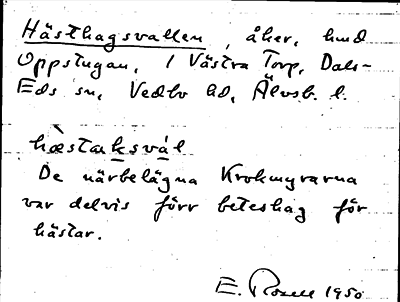 Hästhagsvallen, åker, hmd
Oppstugan, 1 Västra Torp, Dals-
Eds sn, Vedbo hd, Älvsb. l.
hæ̀staksvál
De närbelägna Krokmyrarna
var delvis förr beteshag för
hästar.
E. Rosell 1950